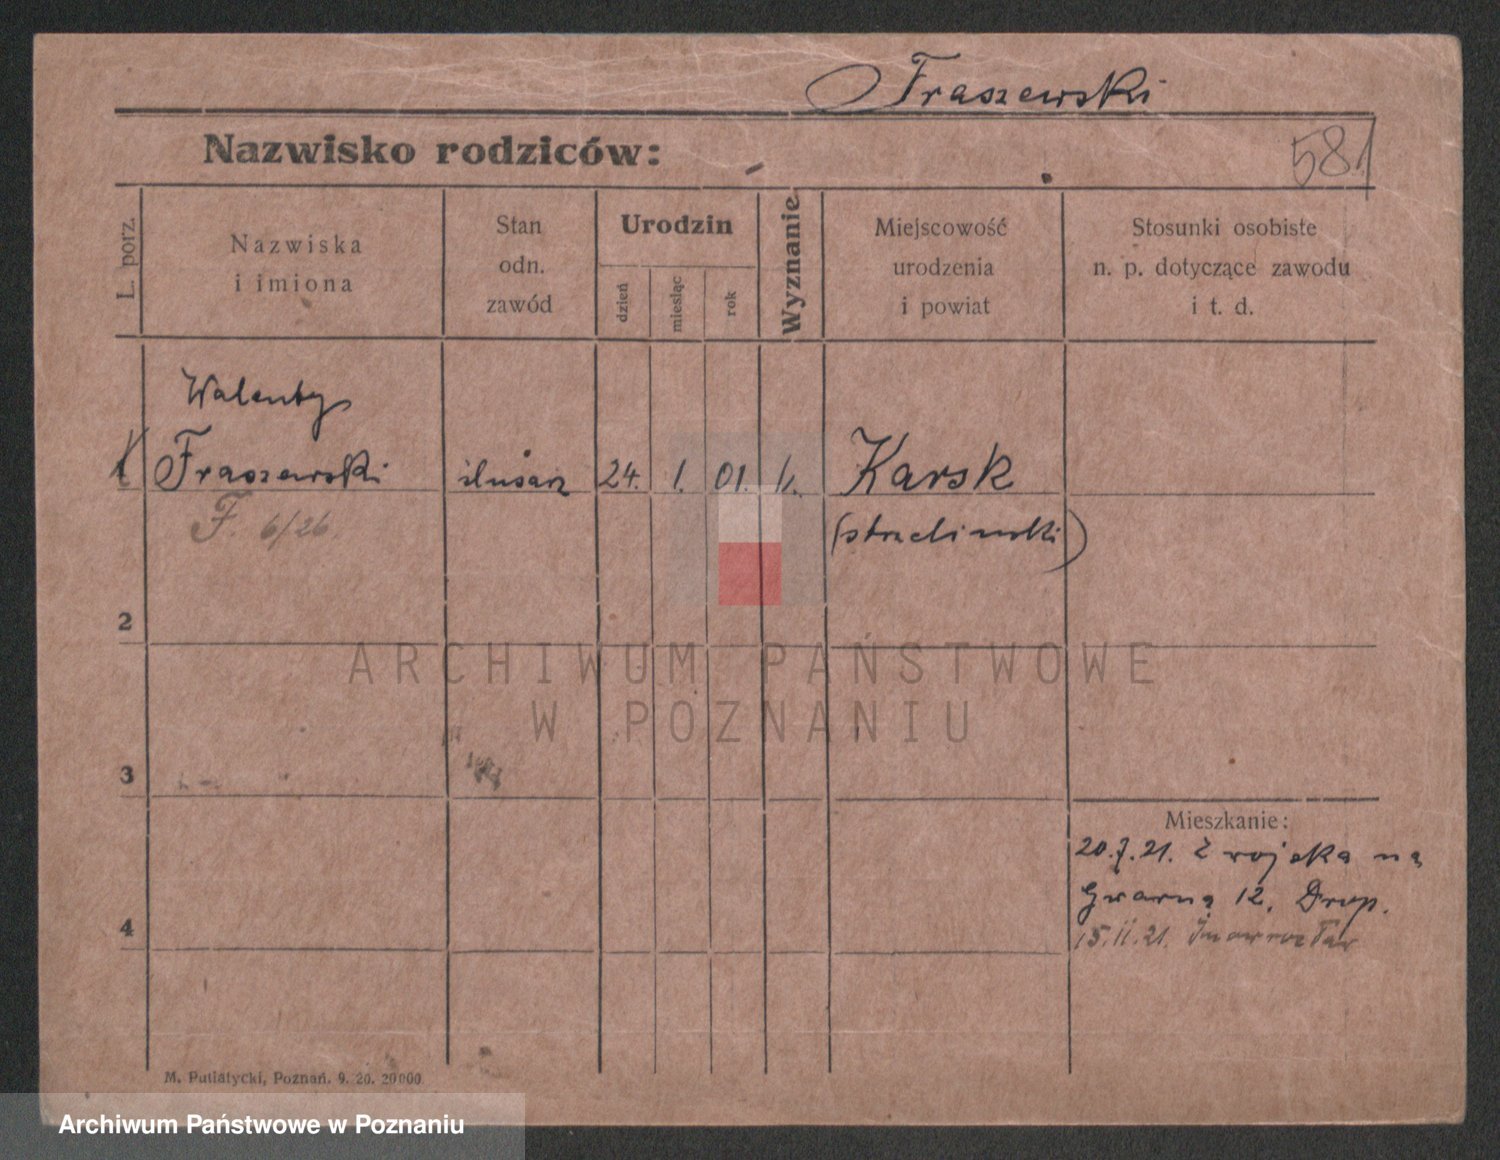 Fraszewski
Nazwisko rodziców:
581
L. porz.
Nazwiska
i imiona
Stan
odn.
zawód
Urodzin
dzień
miesiąc
rok
Wyznanie
Miejscowość
urodzenia
i powiat
Stosunki osobiste
n. p. dotyczące zawodu
i t. d.
Walenty
1 Fraszewski ślusarz 24. 1. 01. k. Karsk
F. 6/26 (strzeliński)
2
ARCHIWUM PAŃSTWOWE
W POZNANIU
3
Mieszkanie:
20.7.21. Z wojska na
Gwarną 12. Drop.
4
15.11.21. Inowrocław
M. Putiatycki, Poznań. 9. 20. 20000
Archiwum Państwowe w Poznaniu